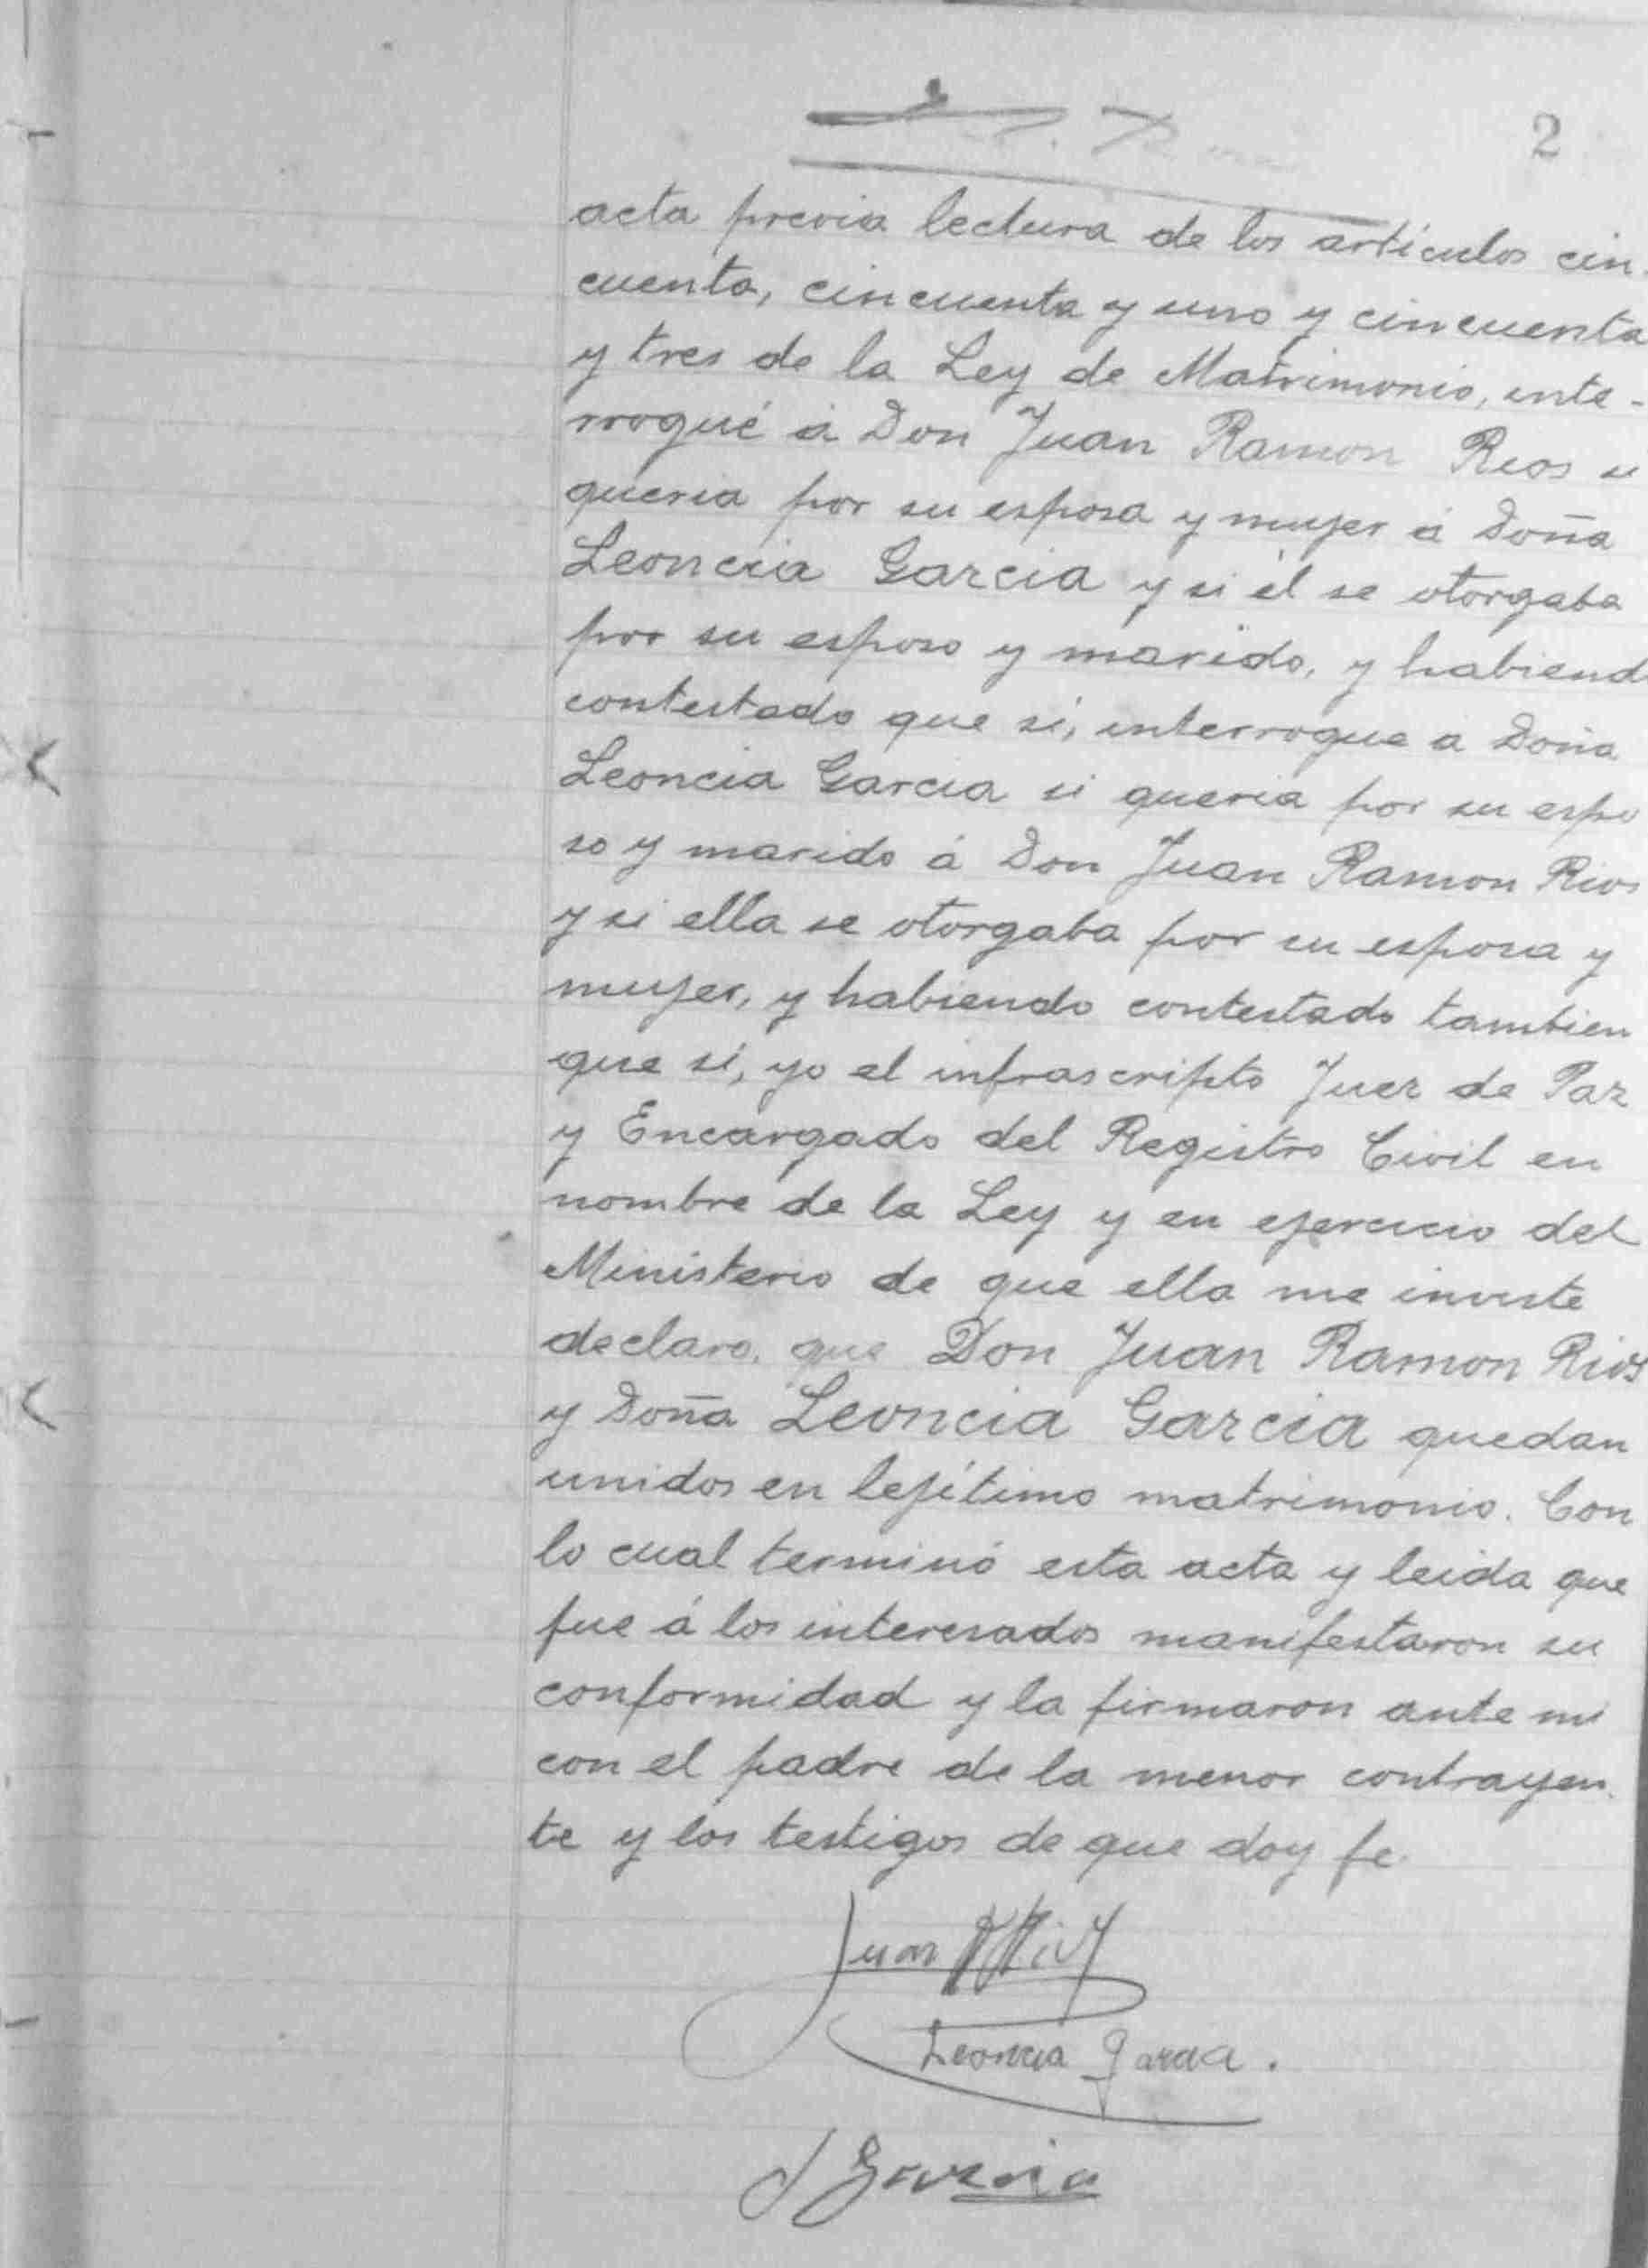 2
acta previa lectura de los artículos cin
cuenta, cincuenta y uno y cincuenta
y tres de la Ley de Matrimonio, inte-
rrogué á Don Juan Ramon Rios si
queria por su esposa y mujer á Doña
Leoncia Garcia y si él se otorgaba
por su esposo y marido, y habiend
contestado que sí, interrogue a Doña
Leoncia Garcia si queria por su espo
so y marido á Don Juan Ramon Rios
y si ella se otorgaba por su esposa y
mujer, y habiendo contestado tambien
que sí, yo el infrascripto Juez de Paz
y Encargado del Registro Civil en
nombre de la Ley y en ejercicio del
Ministerio de que ella me inviste
declaro, que Don Juan Ramon Rios
y Doña Leoncia Garcia quedan
unidos en lejítimo matrimonio. Con
lo cual terminó esta acta y leida que
fue á los interesados manifestaron su
conformidad y la firmaron ante mi
con el padre de la menor contrayen
te y los testigos de que doy fe.
Juan R Rios
Leoncia Garcia.
Garcia